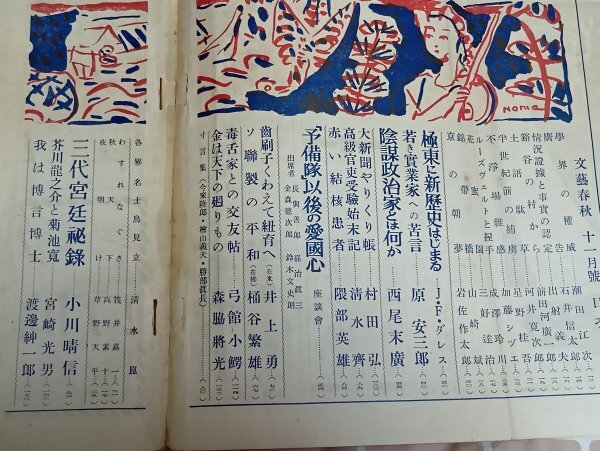 文藝春秋 十一月號 目次
學界の權威 潮田江次
廣告 石井信太郎
情況證據と事實の認定 出射義夫
霜谷の村から 前田河廣一郎
土語駄草 河井寛次郎
半世紀前の捕虜 星野桂吾
不淨場雜感 加藤シヅエ
ルーズヴェルトと握手 成澤玲川
花蜜橋 三好達治
錦帶橋 山崎
京の朝夢 岩佐作太郎
極東に新歷史はじまる J・F・ダレス
若き實業家への苦言 原安三郎
陰謀政治家とは何か 西尾末廣
大新聞やりくり帳 村田弘
高級官吏受驗始末記 清水齊
赤い結核患者 隈部英雄
「予備隊以後の愛國心」 座談會
出席者 長與善郎 嘉治眞三 金森德次郎 鈴木文史朗
齒刷子くわえて紐育へ(在米) 井上勇
ソ聯製の平和(在佛) 桶谷繁雄
毒舌家との交友帖 弓館小鰐
金は天下の廻りもの 森脇將光
寸言集(今東陸郎・檜山義夫・勝部眞長)
各界名士鳥見立 清水崑
わすれなぐさ 筏井嘉一
秋天下 高野素十
夜明け 草野天平
三代宮廷祕錄 小川晴信
芥川龍之介と菊池寬 宮崎光男
我は博言博士 渡邊紳一郎
NOMA